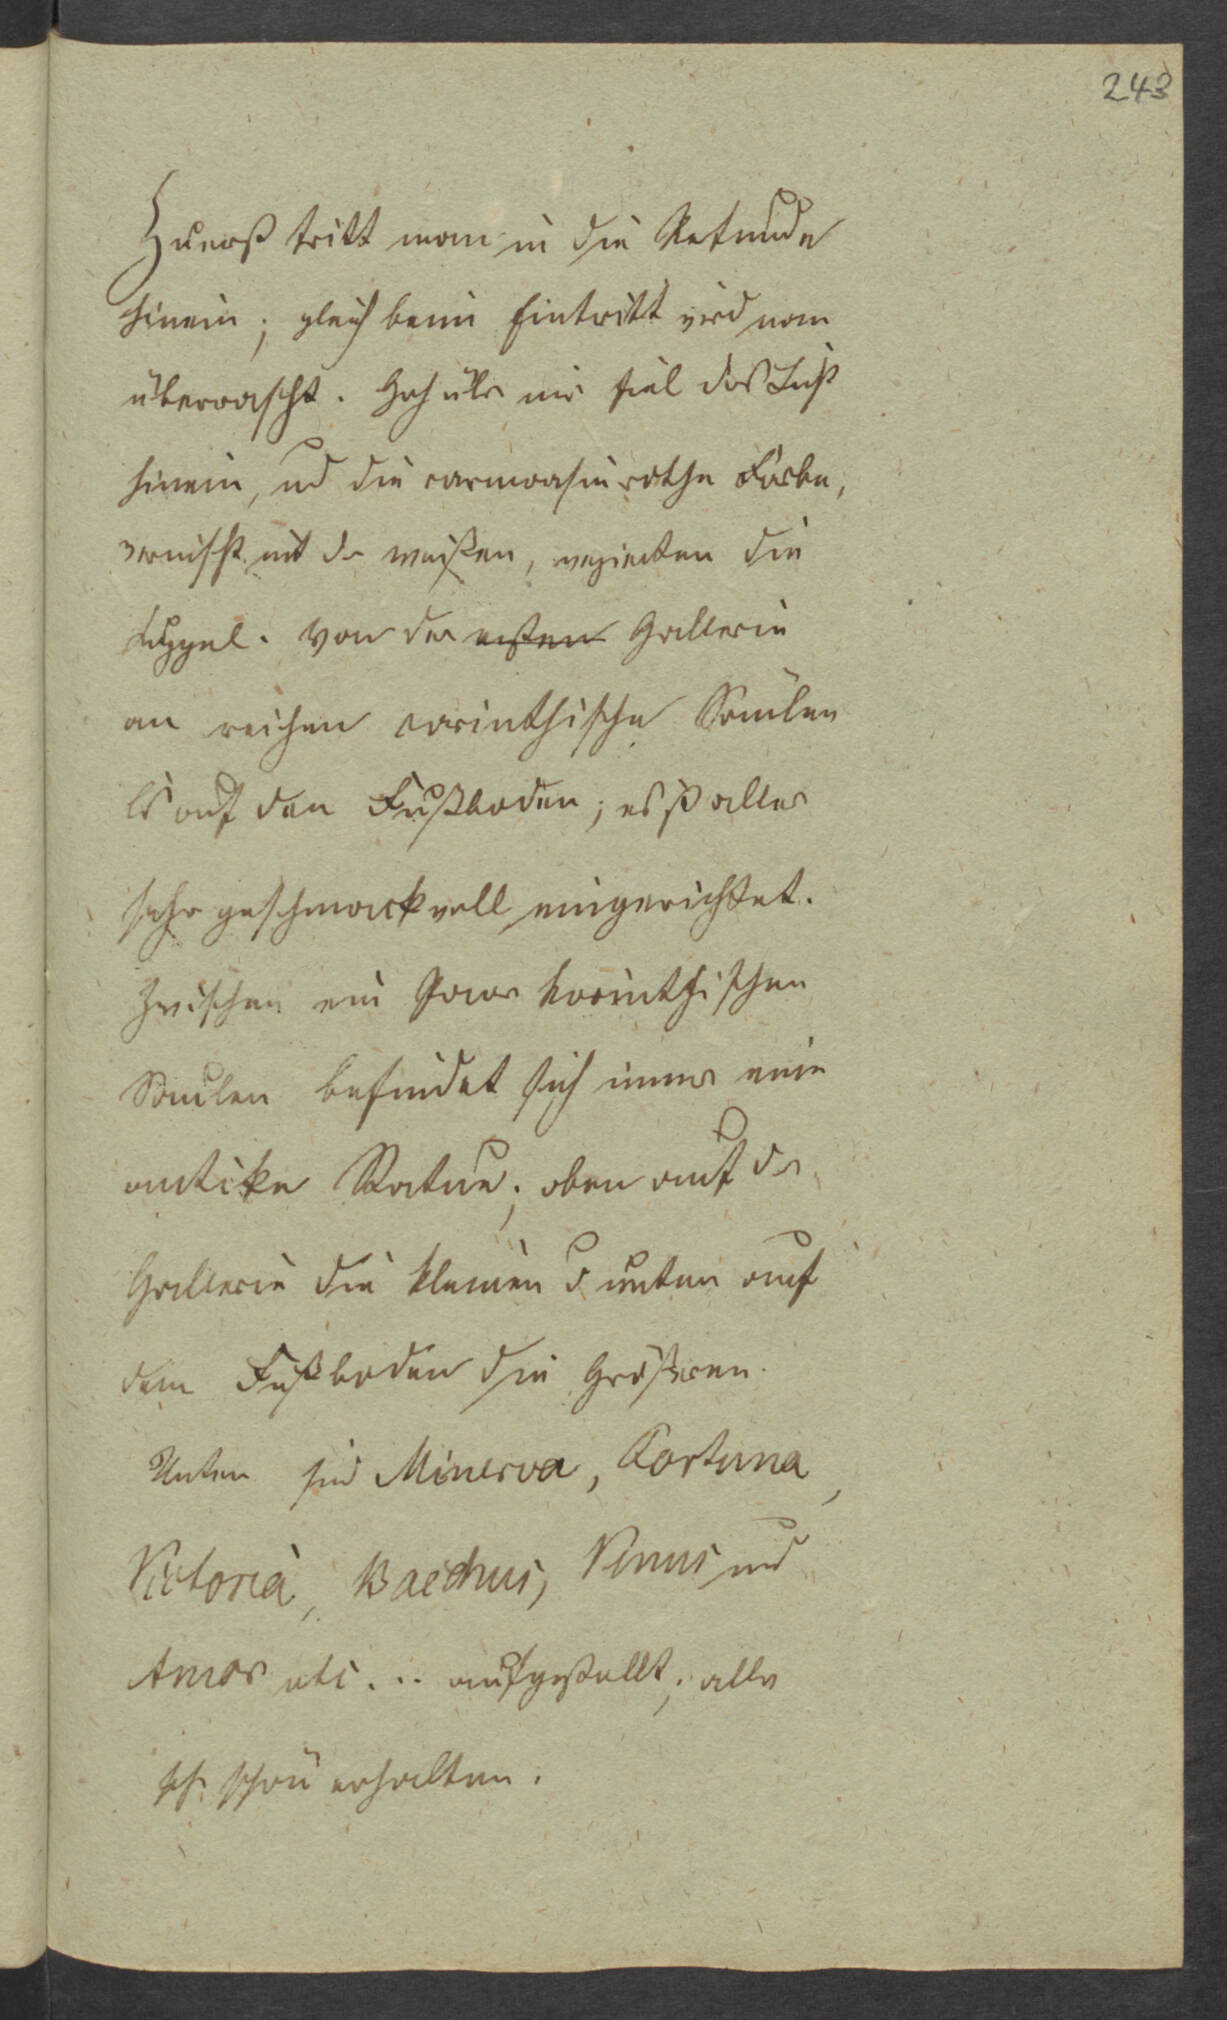 243
Zuerst tritt man in die Rotunde
hinein; gleich beim Eintritt wird man
überrascht. Hoch über mir fiel das Licht
hinein, und die carmoasinrothe Farbe,
vermischt mit der weißen, verzierten die
Kuppel. Von der ersten Gallerie
an reichen corinthische Säulen
bis auf den Fußboden; es ist alles
sehr geschmackvoll eingerichtet.
Zwischen ein Paar korinthischen
Säulen befindet sich immer eine
antike Statue; oben auf der
Gallerie die kleinen u unten auf
dem Fußboden die Größeren.
Unten sind Minerva, Fortuna,
Victoria, Bacchus, Venus und
Amor etc... aufgestellt; alle
sehr schön erhalten.